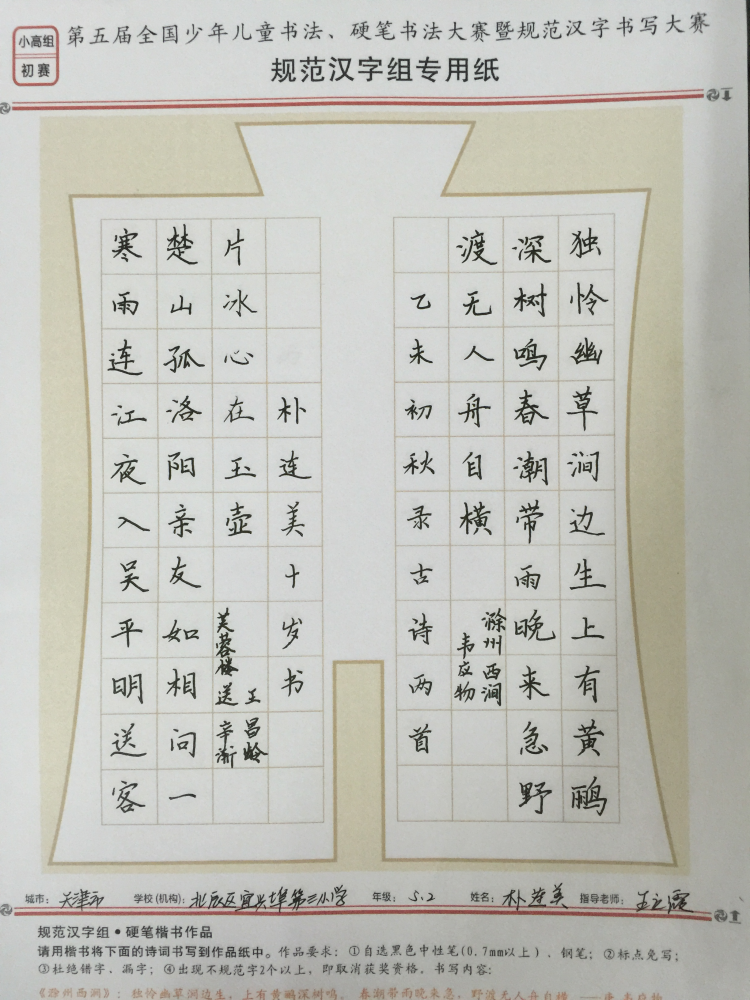 小高组
初赛
第五届全国少年儿童书法、硬笔书法大赛暨规范汉字书写大赛
规范汉字组专用纸
独怜幽草涧边生上有黄鹂
深树鸣春潮带雨晚来急野
渡无人舟自横
滁州西涧
韦应物
乙未初秋录古诗两首
寒雨连江夜入吴平明送客
楚山孤洛阳亲友如相问一
片冰心在玉壶
芙蓉楼送辛渐
王昌龄
朴连美十岁书
城市: 天津市 学校(机构): 北辰区宜兴埠第三小学 年级: 5.2 姓名: 朴莲美 指导老师:
规范汉字组·硬笔楷书作品
请用楷书将下面的诗词书写到作品纸中。作品要求：①自选黑色中性笔(0.7mm以上)、钢笔；②标点免写；
③杜绝错字，漏字；④出现不规范字2个以上，即取消获奖资格，书写内容：
《滁州西涧》：独怜幽草涧边生，上有黄鹂深树鸣。 春潮带雨晚来急，野渡无人舟自横。